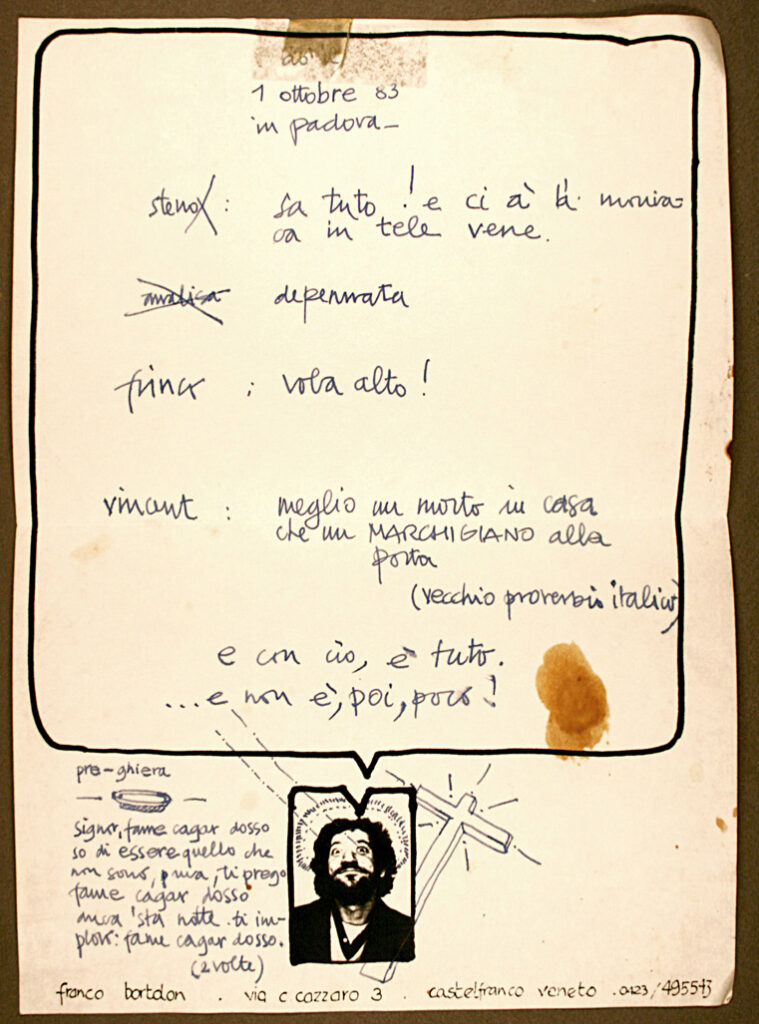 1 ottobre 83
in padova_
steno : sa tuto ! e ci à là monia-
ca in tele vene.
annalisa depennata
frinck : vola alto !
vincent : meglio un morto in casa
che un MARCHIGIANO alla
porta
(vecchio proverbio italico)
e con ciò, è tuto.
...e non è, poi, poco !
pre-ghiera
signor, fame cagar dosso
so di essere quello che
non sono, ti prego
fame cagar dosso
anca 'sta notte . ti im-
ploro: fame cagar dosso.
(2 volte)
franco bortolon . via c cazzaro 3 . castelfranco veneto . 0423/495543